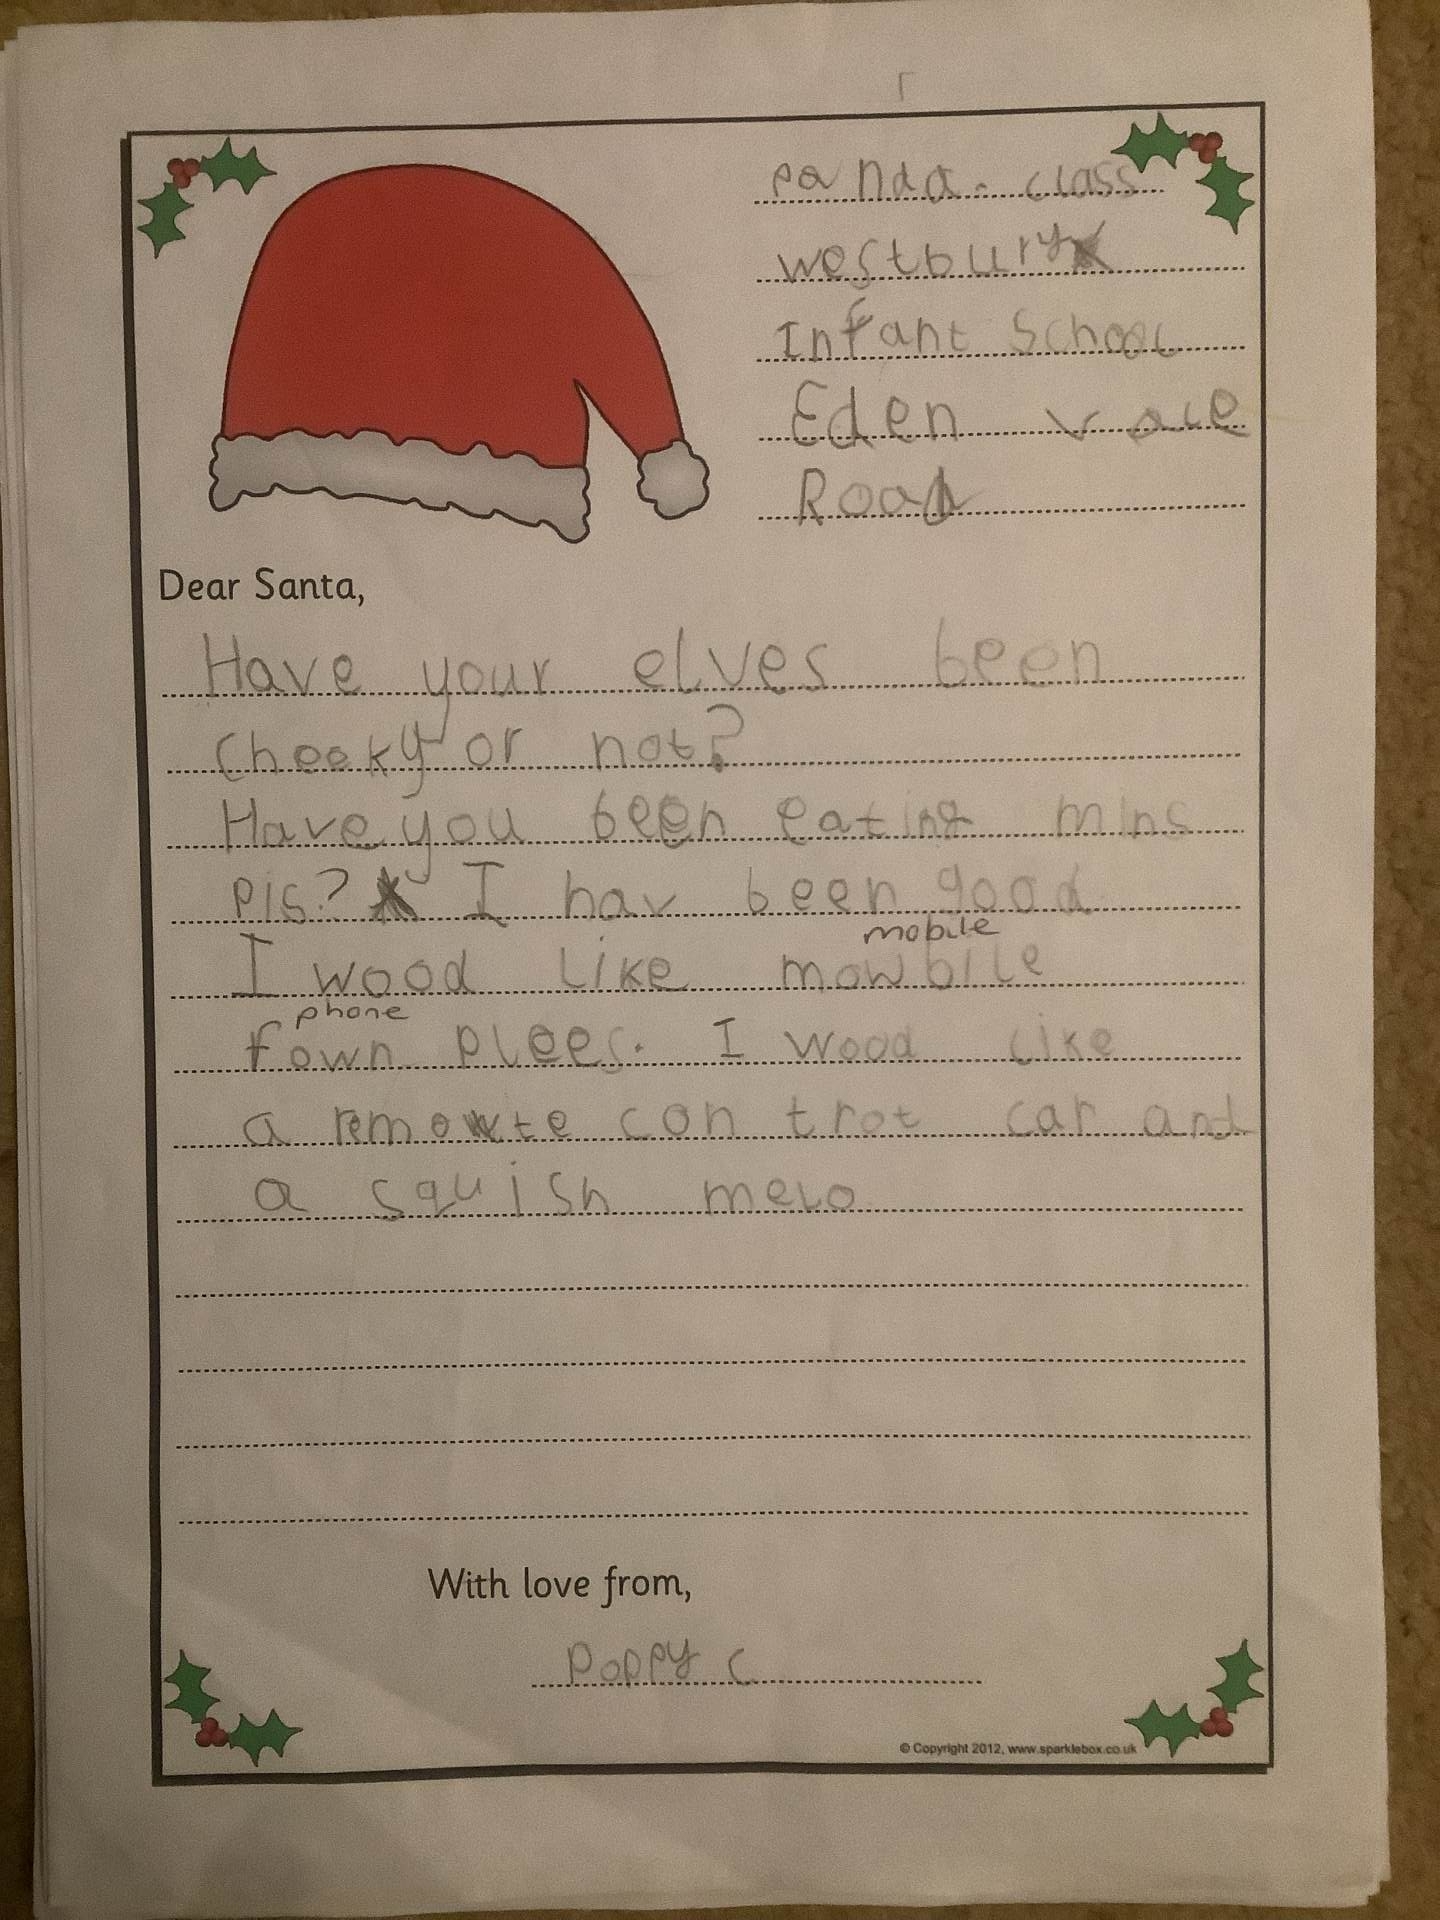 panda class
westbury
Infant School
Eden vale
Road
Dear Santa,
Have your elves been
cheeky or not?
Have you been eating mins
pis? I hav been good
mobile
I wood like mowbile
phone
fown plees. I wood like
a remowte controt car and
a squish melo
With love from,
Poppy C
© Copyright 2012, www.sparklebox.co.uk